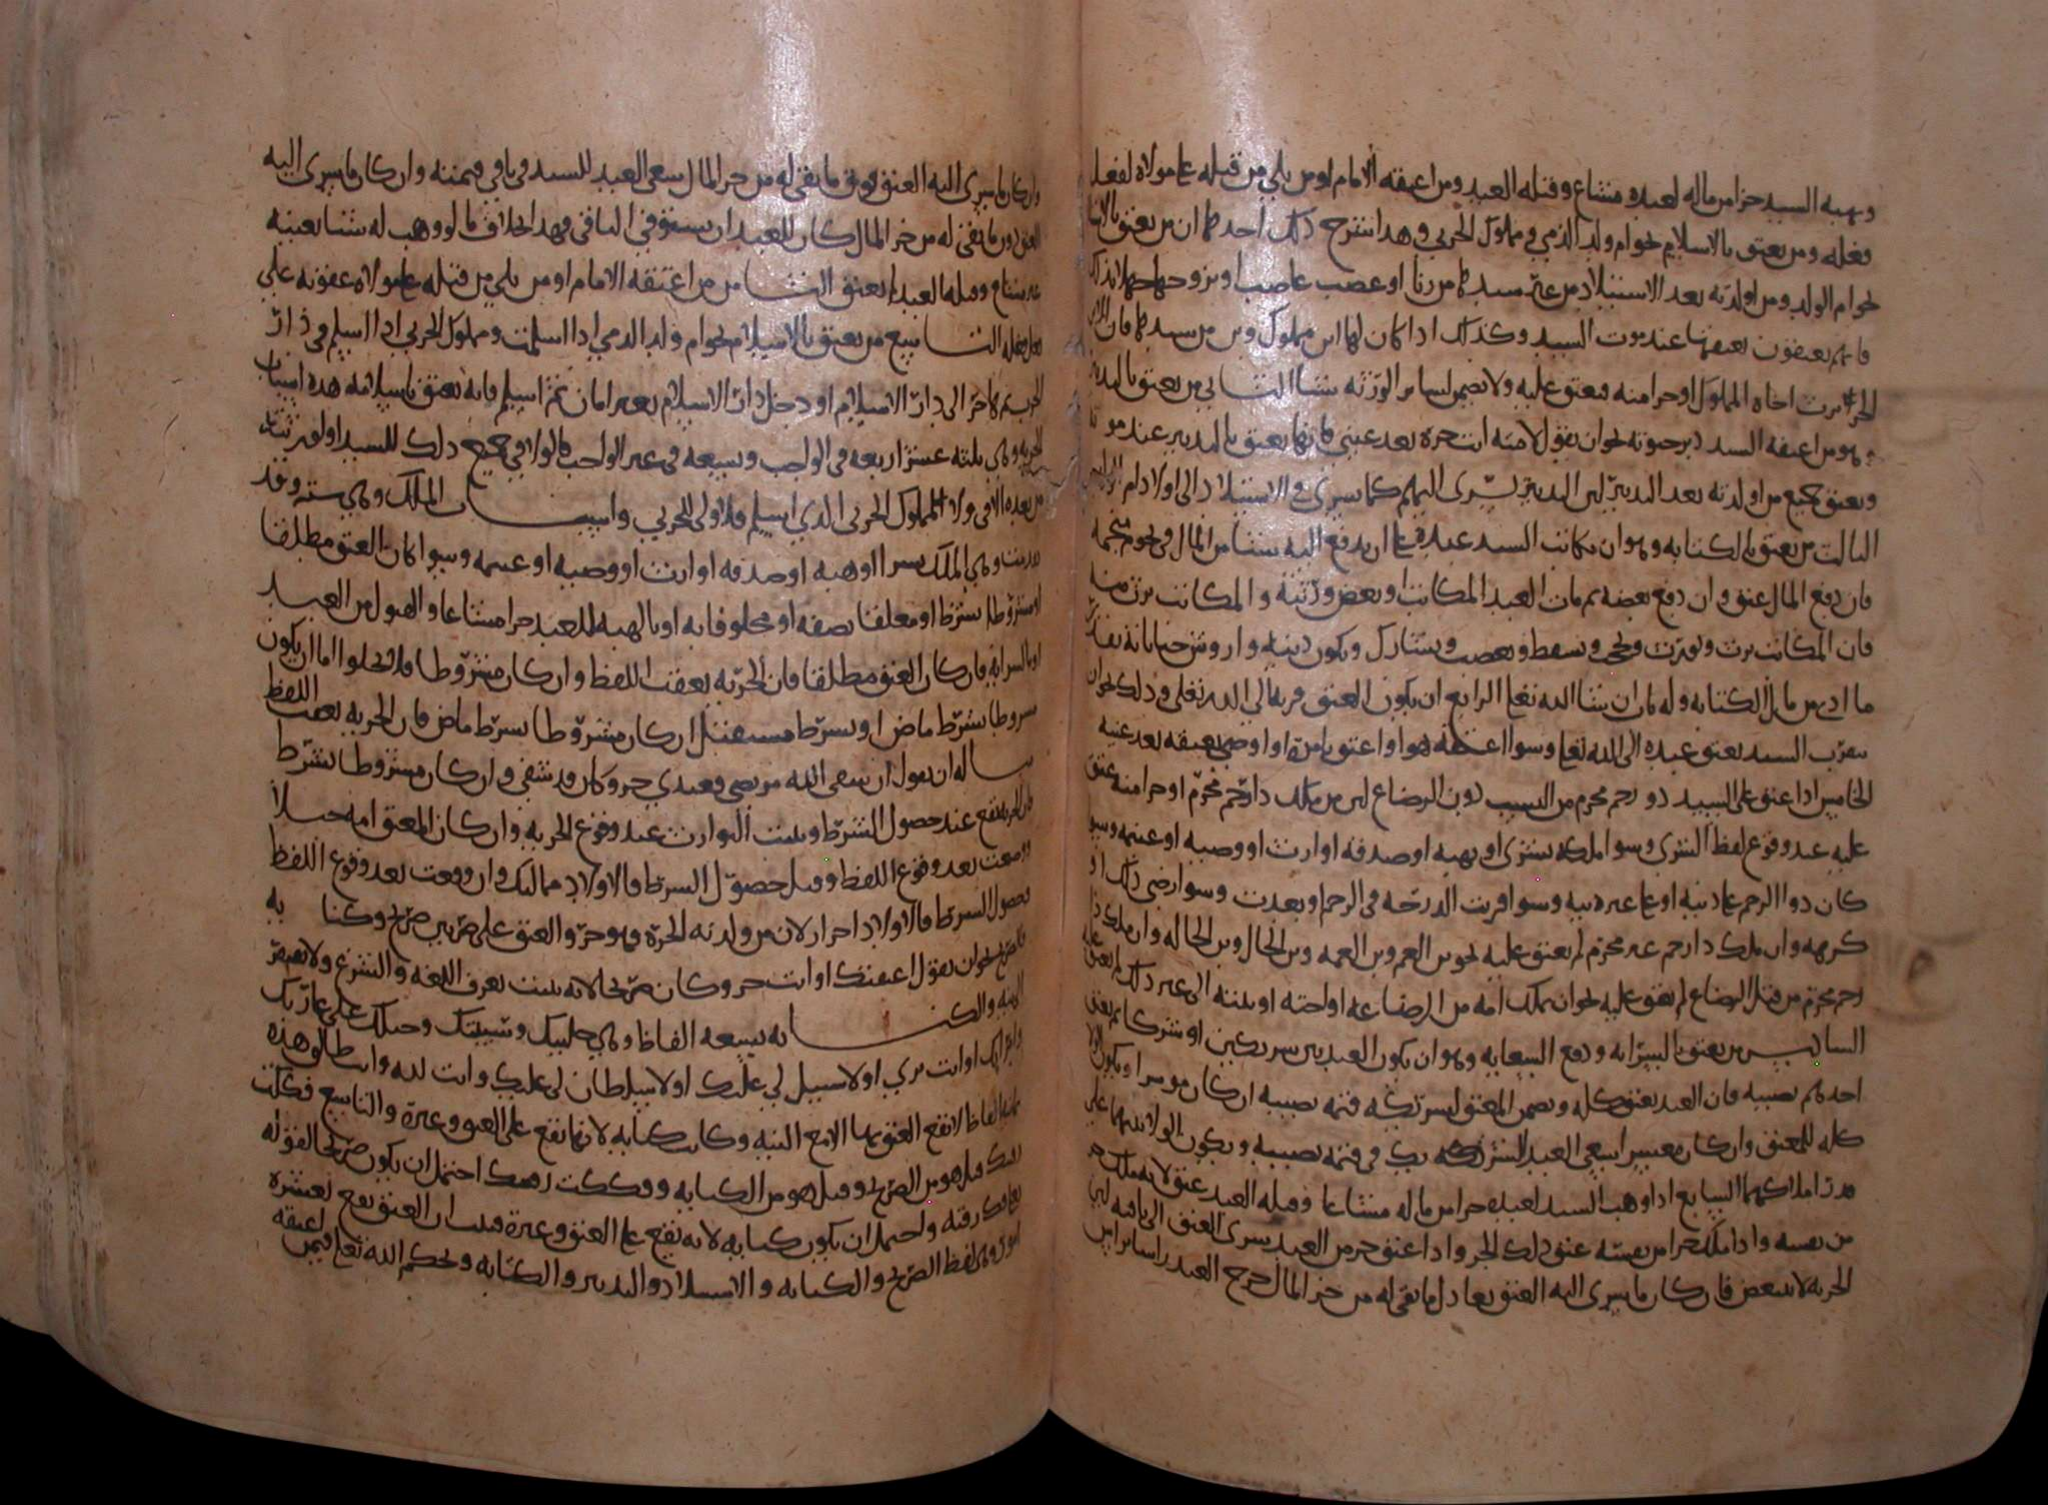 وهبه السيد جزا من ماله لعبده مشاع وقبله العبد ومن اعتقه الامام او من يلي من قبله على مولاه لفعل
فعله ومن يعتق بالاسلام نحو ام ولد الذمي ومملوك الحربي وهذا شرح ذلك احدها ان من يعتق بالاستيلاد
نحو ام الولد ومن اولدته بعد الاستيلاد من غير سيدها من زنا او غصب غاصب او تزوجها جهلا بذلك
فانهم يعتقون بعتقها عند موت السيد وكذلك اذا كان لها ابن مملوك وبن من سيدها فان
الحر يرث اخاه المملوك او جزا منه فيعتق عليه ولا يضمن لساير الورثه شيا الثاني من يعتق بالتدبير
وهو من اعتقه السيد دبر حيوته نحو ان يقول لامته انت حره بعد عيني فانها تعتق بالتدبير عند موته
ويعتق جميع من اولدته بعد التدبير لان التدبير يسري اليهم كما يسري في الاستيلاد الى اولاد ام الولد
الثالث من يعتق بالكتابه وهو ان يكاتب السيد عبده على ان يدفع اليه شيا من المال في نجوم منجمه
فان دفع المال عتق وان دفع بعضه ثم مات العبد المكاتب او بعض ورثته والمكاتب يرث منه
فان المكاتب يرث ويورث ويحجب ويسقط ويعصب ويشارك ويكون ديته واروش جناياته بقدر
ما ادى من مال الكتابه وله باب ان شا الله تعالى الرابع ان يكون العتق قربه الى الله تعالى وذلك نحو ان
يتقرب السيد بعتق عبده الى الله تعالى وسوا اعتقه هو او اعتق بامره او اوصى بعتقه بعد عينه
الخامس اذا عتق على السيد ذو رحم محرم من النسب دون الرضاع لان من ملك ذا رحم محرم او جزا منه عتق
عليه عند وقوع لفظ الشرى وسوا ملكه بشرى او بهبه او صدقه او ارث او وصيه او غنيمه وسوا
كان ذوا الرحم على دينه او على غير دينه وسوا قربت الدرجه في الرحم او بعدت وسوا رضي ذلك او
كرهه وان ملك ذا رحم غير محرم لم يعتق عليه نحو بن العم وبن العمه وبن الخال وبن الخاله وان ملك ذا
رحم محرم من قبل الرضاع لم يعتق عليه نحو ان يملك امه من الرضاعه او اخته او بنته الى غير ذلك لم يعتق عليه
السادس من يعتق بالسرايه ودفع السعايه وهو ان يكون العبد بين شريكين او شركا ثم يعتق
احدهم نصيبه فان العبد يعتق كله ويضمن المعتق لشريكه قيمه نصيبه ان كان موسرا ويكون الولا
كله للمعتق وان كان معسرا سعى العبد لشريكه في قيمه نصيبه ويكون الولا بينهما على
قدر املاكهما السابع اذا وهب السيد لعبده جزا من ماله مشاعا وقبله العبد عتق لانه ملك جزا
من نفسه واذا ملك جزا من نفسه عتق ذلك الجز واذا عتق جز من العبد سرى العتق الى باقيه لان
الحريه لا تتبعض فان كان ما يسري اليه العتق يعادل ما بقي له من جز المال خرج العبد راسا براس
وان كان ما يسري اليه العتق فوق ما بقي له من جز المال سعى العبد للسيد في باقي قيمته وان كان ما يسري اليه
العتق دون ما بقي له من جز المال كان للعبد ان يستوفي الباقي وهذا بخلاف ما لو وهب له شيا بعينه
غير مشاع وقبله العبد لم يعتق الثامن من اعتقه الامام او من يلي من قبله على مولاه عقوبه على
فعل فعله التاسع من يعتق بالاسلام نحو ام ولد الذمي اذا اسلمت ومملوك الحربي اذا اسلم في دار
الحرب ثم هاجر الى دار الاسلام او دخل دار الاسلام بغير امان ثم اسلم فانه يعتق باسلامه هذه اسباب
الحريه وهي ثلثه عشر اربعه في الواجب وتسعه في غير الواجب فالولا في جميع ذلك للسيد او لورثته
من بعده الا في ولا المملوك الحربي الذي اسلم فلا ولا للحربي واسباب الملك وهي سته وقد
قدمت وهي الملك بشرا او هبه او صدقه او ارث او وصيه او غنيمه وسوا كان العتق مطلقا
او مشروطا بشرط او معلقا بصفه او محلوفا به او بالهبه للعبد جزا مشاعا والقبول من العبد
او بالسرايه فان كان العتق مطلقا فان الحريه بعقب اللفظ وان كان مشروطا فلا يخلوا اما ان يكون
مشروطا بشرط ماض او بشرط مستقبل ان كان مشروطا بشرط ماض فان الحريه بعقب اللفظ
مثاله ان يقول ان شفى الله مريضي فعبدي حر وكان قد شفي وان كان مشروطا بشرط
فان الحريه تقع عند حصول الشرط ويثبت التوارث عند وقوع الحريه وان كان المعتق امه حبلا
وضعت بعد وقوع اللفظ وقبل حصول الشرط فالاولاد مماليك وان وضعت بعد وقوع اللفظ
وحصول الشرط فالاولاد احرار لان من ولدته الحره فهو حر والعتق على ضربين صريح وكنايه
فالصريح نحو ان يقول اعتقتك او انت حر وكان صريحا لانه يثبت بعرف اللغه والشرع ولا يفتقر
الى نيه والكنايه تسعه الفاظ وهي خليتك وسيبتك وحبلك على غاربك
او انت بري او لا سبيل لي عليك او لا سلطان لي عليك وانت لله وانت طالق هذه
ثمانيه الفاظ لا تقع العتق بها الا مع النيه وكانت كنايه لانها تقع على العتق وغيره والتاسع فككت
رقبتك قيل هو من الصريح وقيل هو من الكنايه وفككت رقبتك احتمل ان يكون صريحا لقوله
تعالى فك رقبه واحتمل ان يكون كنايه لانه يقع على العتق وغيره فثبت ان العتق يقع بعشره
امور وهي لفظ الصريح والكنايه والاستيلاد والتدبير والكتابه وبحكم الله تعالى فيمن اعتقه